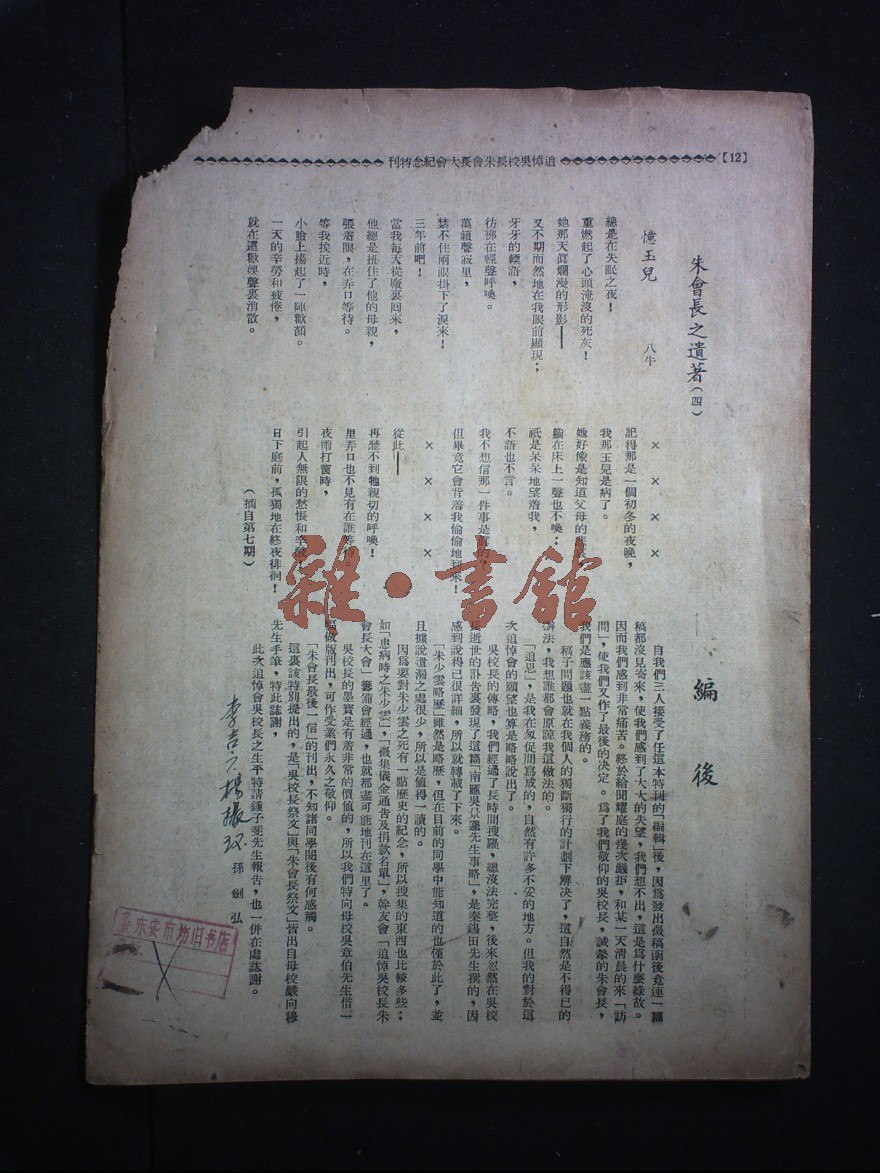 【12】
追悼吳校長朱會長大會紀念特刊
朱會長之遺著(四)
憶玉兒　八牛
總是在失眠之夜！
重燃起了心頭淹沒的死灰！
她那天真爛漫的形影——
又不期而然地在我眼前顯現；
牙牙的嬌語，
彷彿在輕聲呼喚。
萬籟聲寂里，
禁不住兩眼掛下了淚來！
三年前吧！
當我每天從廠裏回來，
他總是扭住了他的母親，
張着眼，在弄口等待。
等我挨近時，
小臉上揚起了一陣歡顏。
一天的辛勞和疲倦，
就在這歡娛聲裏消散。
××××
記得那是一個初冬的夜晚，
我那玉兒是病了。
她好像是知道父母的
躺在床上一聲也不喚；
祇是呆呆地望着我，
不語也不言。
我不想信那一件事是真的，
但畢竟它會背着我偷偷地到來！
××××
從此——
再聽不到牠親切的呼喚！
里弄口也不見有在誰等待
夜雨打窗時，
引起人無限的愁悵和辛酸
日下庭前，孤獨地在終夜徘徊！
(摘自第七期)
編後
自我們三人接受了任這本特刊的「編輯」後，因為發出徵稿函後竟連一篇
稿都沒見寄來，使我們感到了大大的失望，我們想不出，這是爲什麼緣故。
因而我們感到非常痛苦。終於給聞耀庭的幾次嚴拒，和某一天清晨的來「訪
問」，使我們又作了最後的決定。爲了我們敬仰的吳校長，誠摯的朱會長，
我們是應該盡一點義務的。
稿子問題也就在我個人的獨斷獨行的計劃下解決了，這自然是不得已的
辦法，我想誰都會原諒我這做法的。
「追思」，是我在匆促間寫成的，自然有許多不妥的地方。但我的對於這
次追悼會的願望也算是略略說出了。
吳校長的傳略，我們經過了長時間搜羅，總沒法完整，後來忽然在吳校
長逝世的訃告裏發現了這篇「南匯吳景蓮先生事略」，是秦錫田先生撰的，因
感到說得已很詳細，所以就轉載了下來。
「朱少雲略歷」雖然是略歷，但在目前的同學中能知道的也僅於此了，並
且據說遺漏之處很少，所以是值得一讀的。
因爲要對朱少雲之死有一點歷史的紀念，所以搜集的東西也比較多些；
如「患病時之朱少雲」，「徵集儀金通告及捐款名單」，幹友會「追悼吳校長朱
會長大會」籌備會經過，也就都盡可能地刊在這里了。
吳校長的墨寶是有着非常的價值的，所以我們特向母校吳章伯先生借一
幅做版刊出，可作受業們永久之敬仰。
「朱會長最後一信」的刊出，不知諸同學閱後有何感觸。
這裏該特別提出的，是「吳校長祭文」與「朱會長祭文」皆出自母校嚴向穆
先生手筆，特此誌謝，
此次追悼會吳校長之生平特請鍾子斐先生報告，也一併在處誌謝。
楊振
孫劍弘
东安市场旧书店
雜·書館